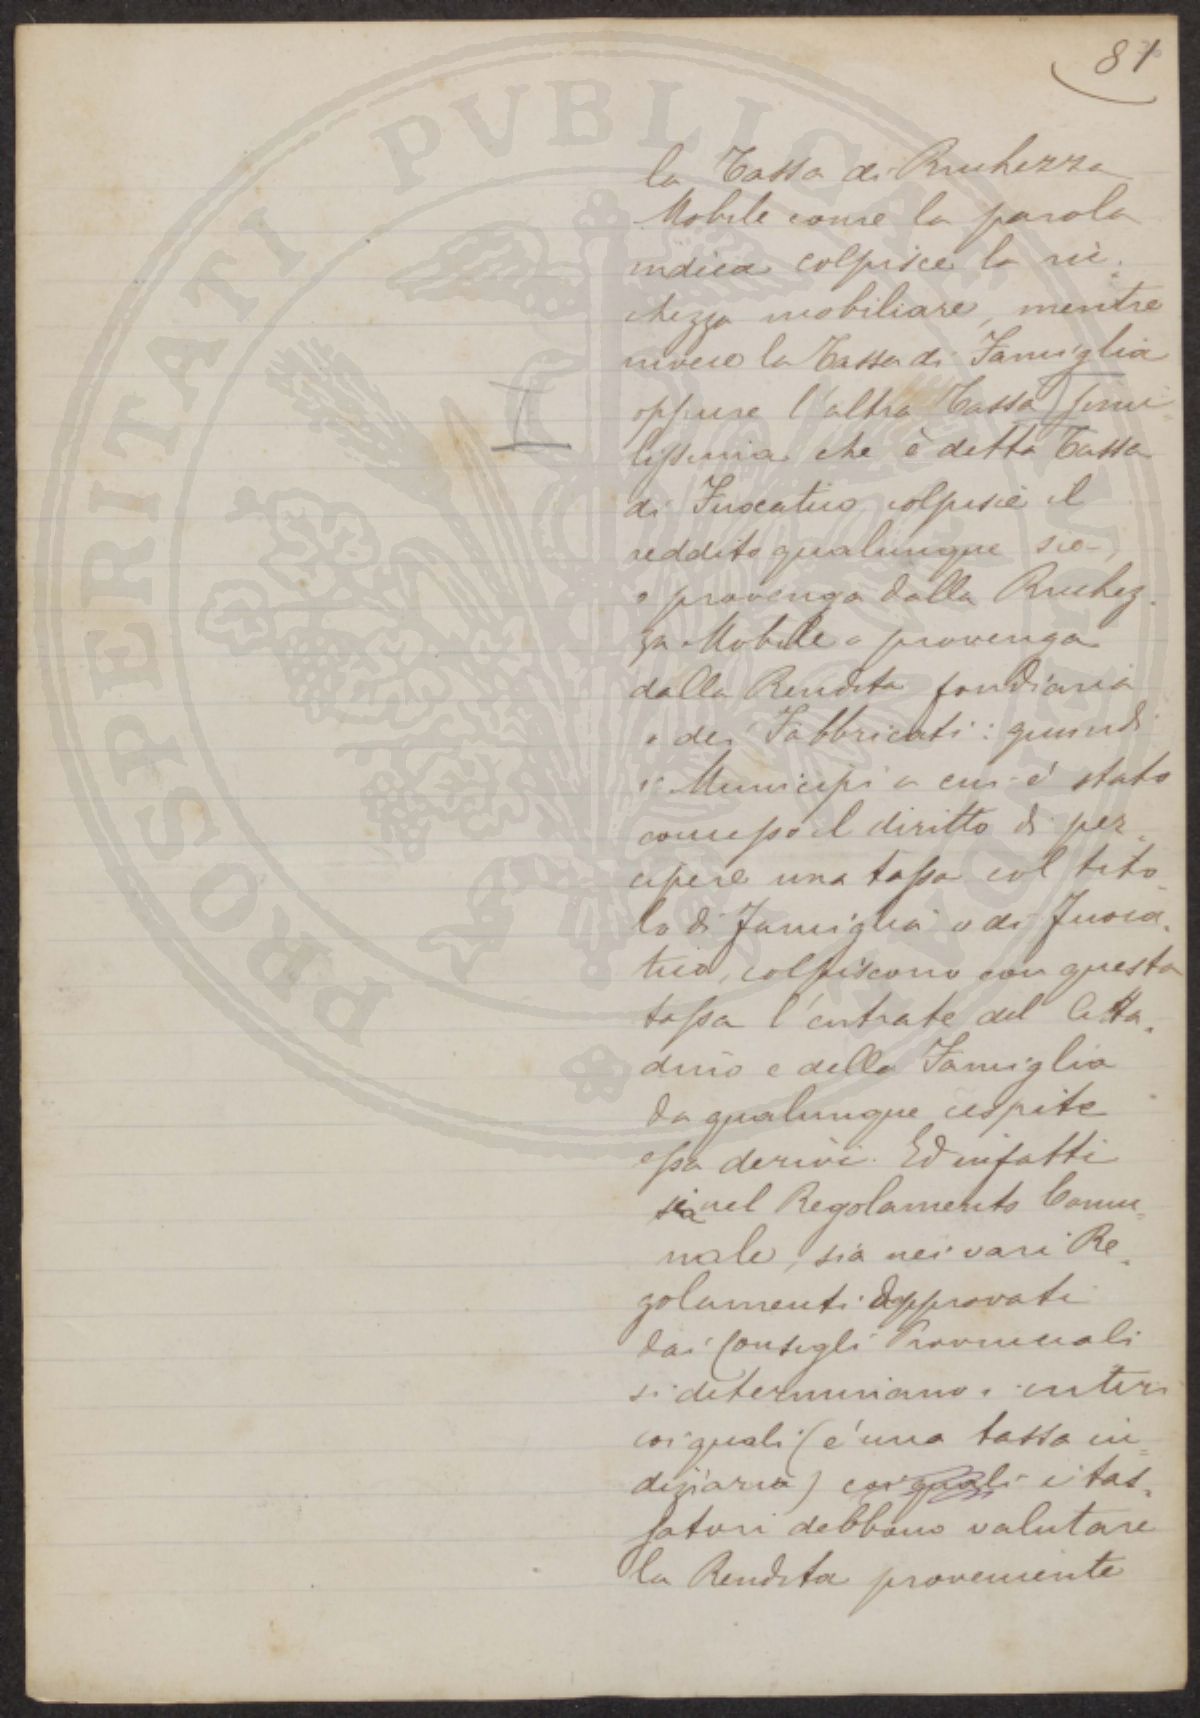 81
la Tassa di Ricchezza
Mobile come la parola
indica colpisce la ric-
chezza mobiliare, mentre
invece la Tassa di Famiglia
oppure l'altra Tassa simi-
lissima che è detta Tassa
di Fuocatico colpisce il
reddito qualunque sia,
o provenga dalla Ricchez-
za Mobile o provenga
dalla Rendita fondiaria
o dei Fabbricati: quindi
i Municipi a cui è stato
concesso il diritto di per-
cipere una tassa col tito-
lo di Famiglia o di Fuoca-
tico, colpiscono con questa
tassa l'entrate del Citta-
dino e della Famiglia
da qualunque cespite
essa derivi. Ed infatti
sia nel Regolamento Comu-
nale, sia nei vari Re-
golamenti approvati
dai Consigli Provinciali
si determinano i criteri
coi quali (è una tassa in-
diziaria) coi quali i tas-
satori debbono valutare
la Rendita proveniente
PROSPERITATI PVBLICAE